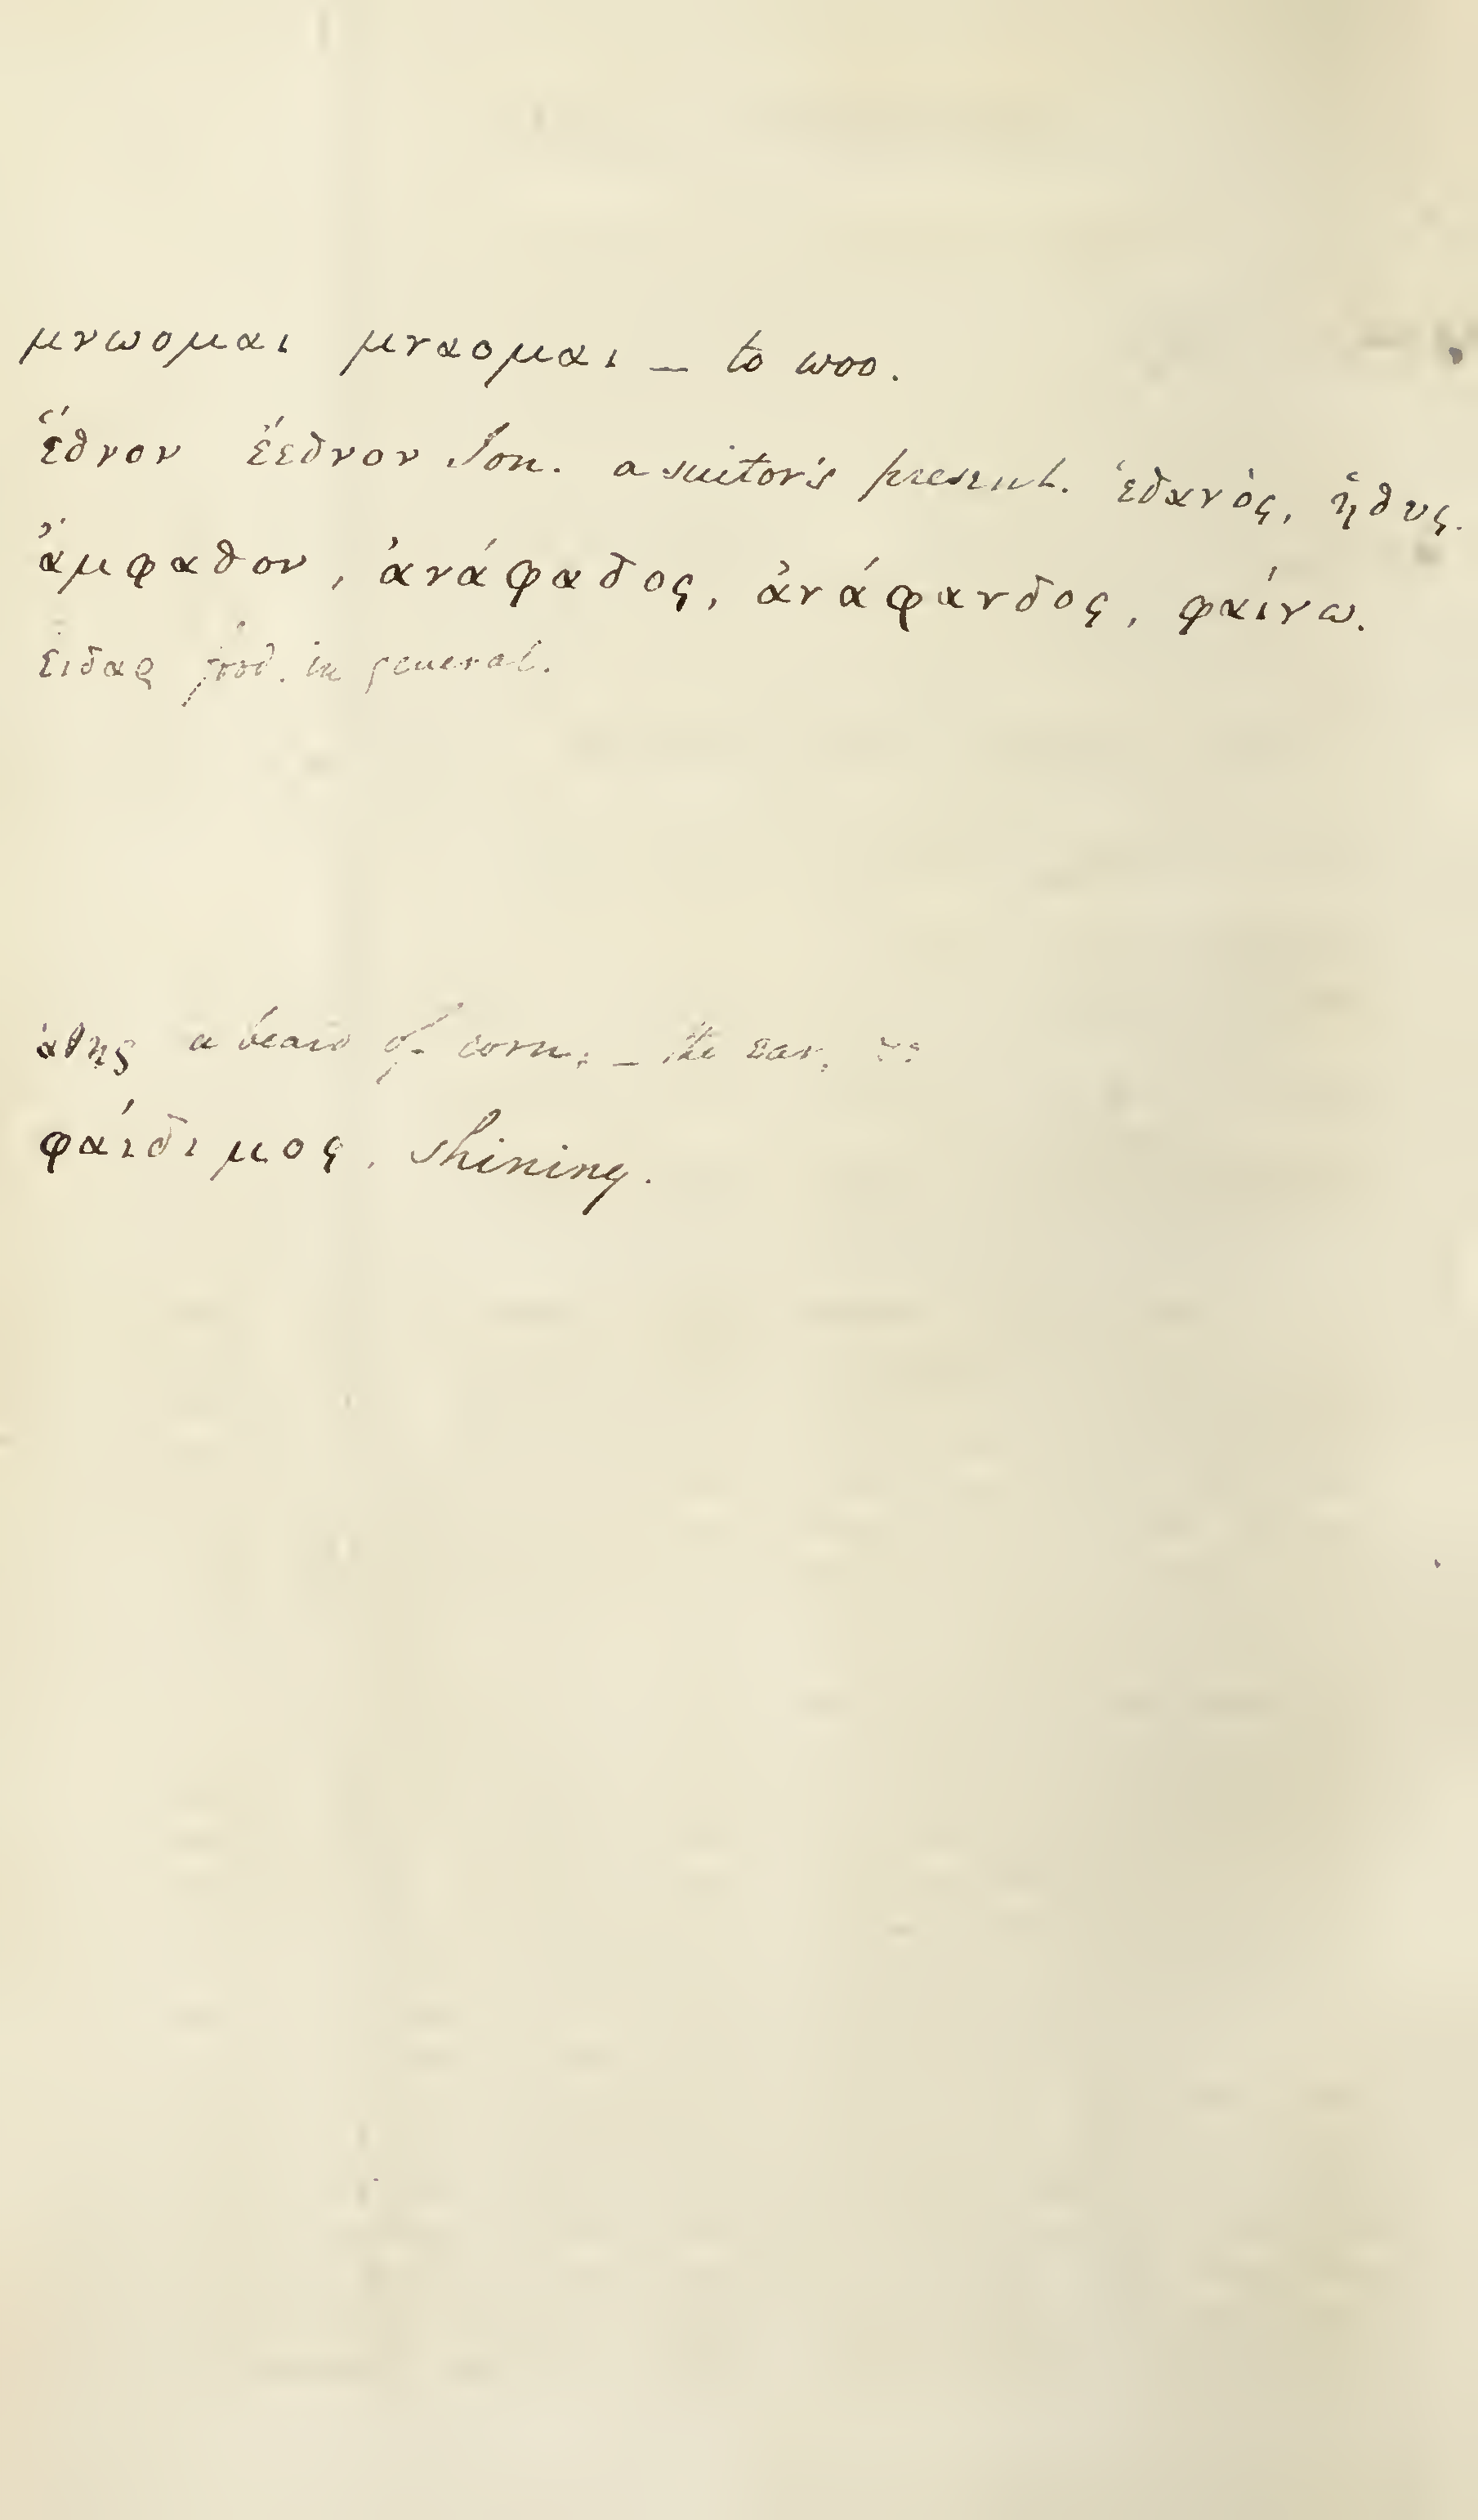 μνωομαι μναομαι – to woo.
ἕδνον ἔεδνον Ion. a suitor's present. ἑδανὸς, ἡδυς.
ἄμφαδον, ἀνάφαδος, ἀνάφανδος, φαίνω.
εἰδαρ food. in general.
a beard of corn, – the ear.
φαίδιμος. shining.